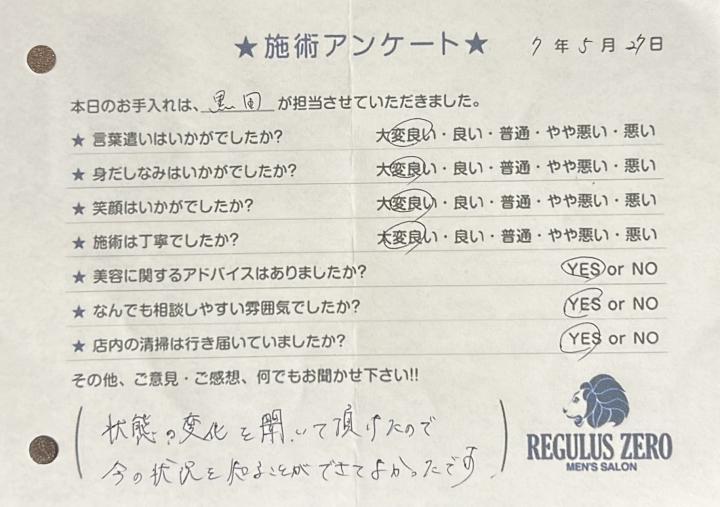 ★施術アンケート★ 7年5月27日
本日のお手入れは、黒田が担当させていただきました。
★ 言葉遣いはいかがでしたか? 大変良い・良い・普通・やや悪い・悪い
★ 身だしなみはいかがでしたか? 大変良い・良い・普通・やや悪い・悪い
★ 笑顔はいかがでしたか? 大変良い・良い・普通・やや悪い・悪い
★ 施術は丁寧でしたか? 大変良い・良い・普通・やや悪い・悪い
★ 美容に関するアドバイスはありましたか? YES or NO
★ なんでも相談しやすい雰囲気でしたか? YES or NO
★ 店内の清掃は行き届いていましたか? YES or NO
その他、ご意見・ご感想、何でもお聞かせ下さい!!
状態の変化を聞いて頂けたので
今の状況を知ることができてよかったです
REGULUS ZERO
MEN'S SALON